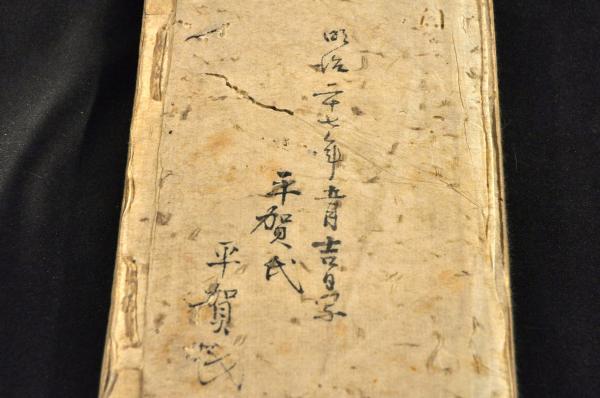 明治二十七年五月吉日写
平賀氏
平賀氏